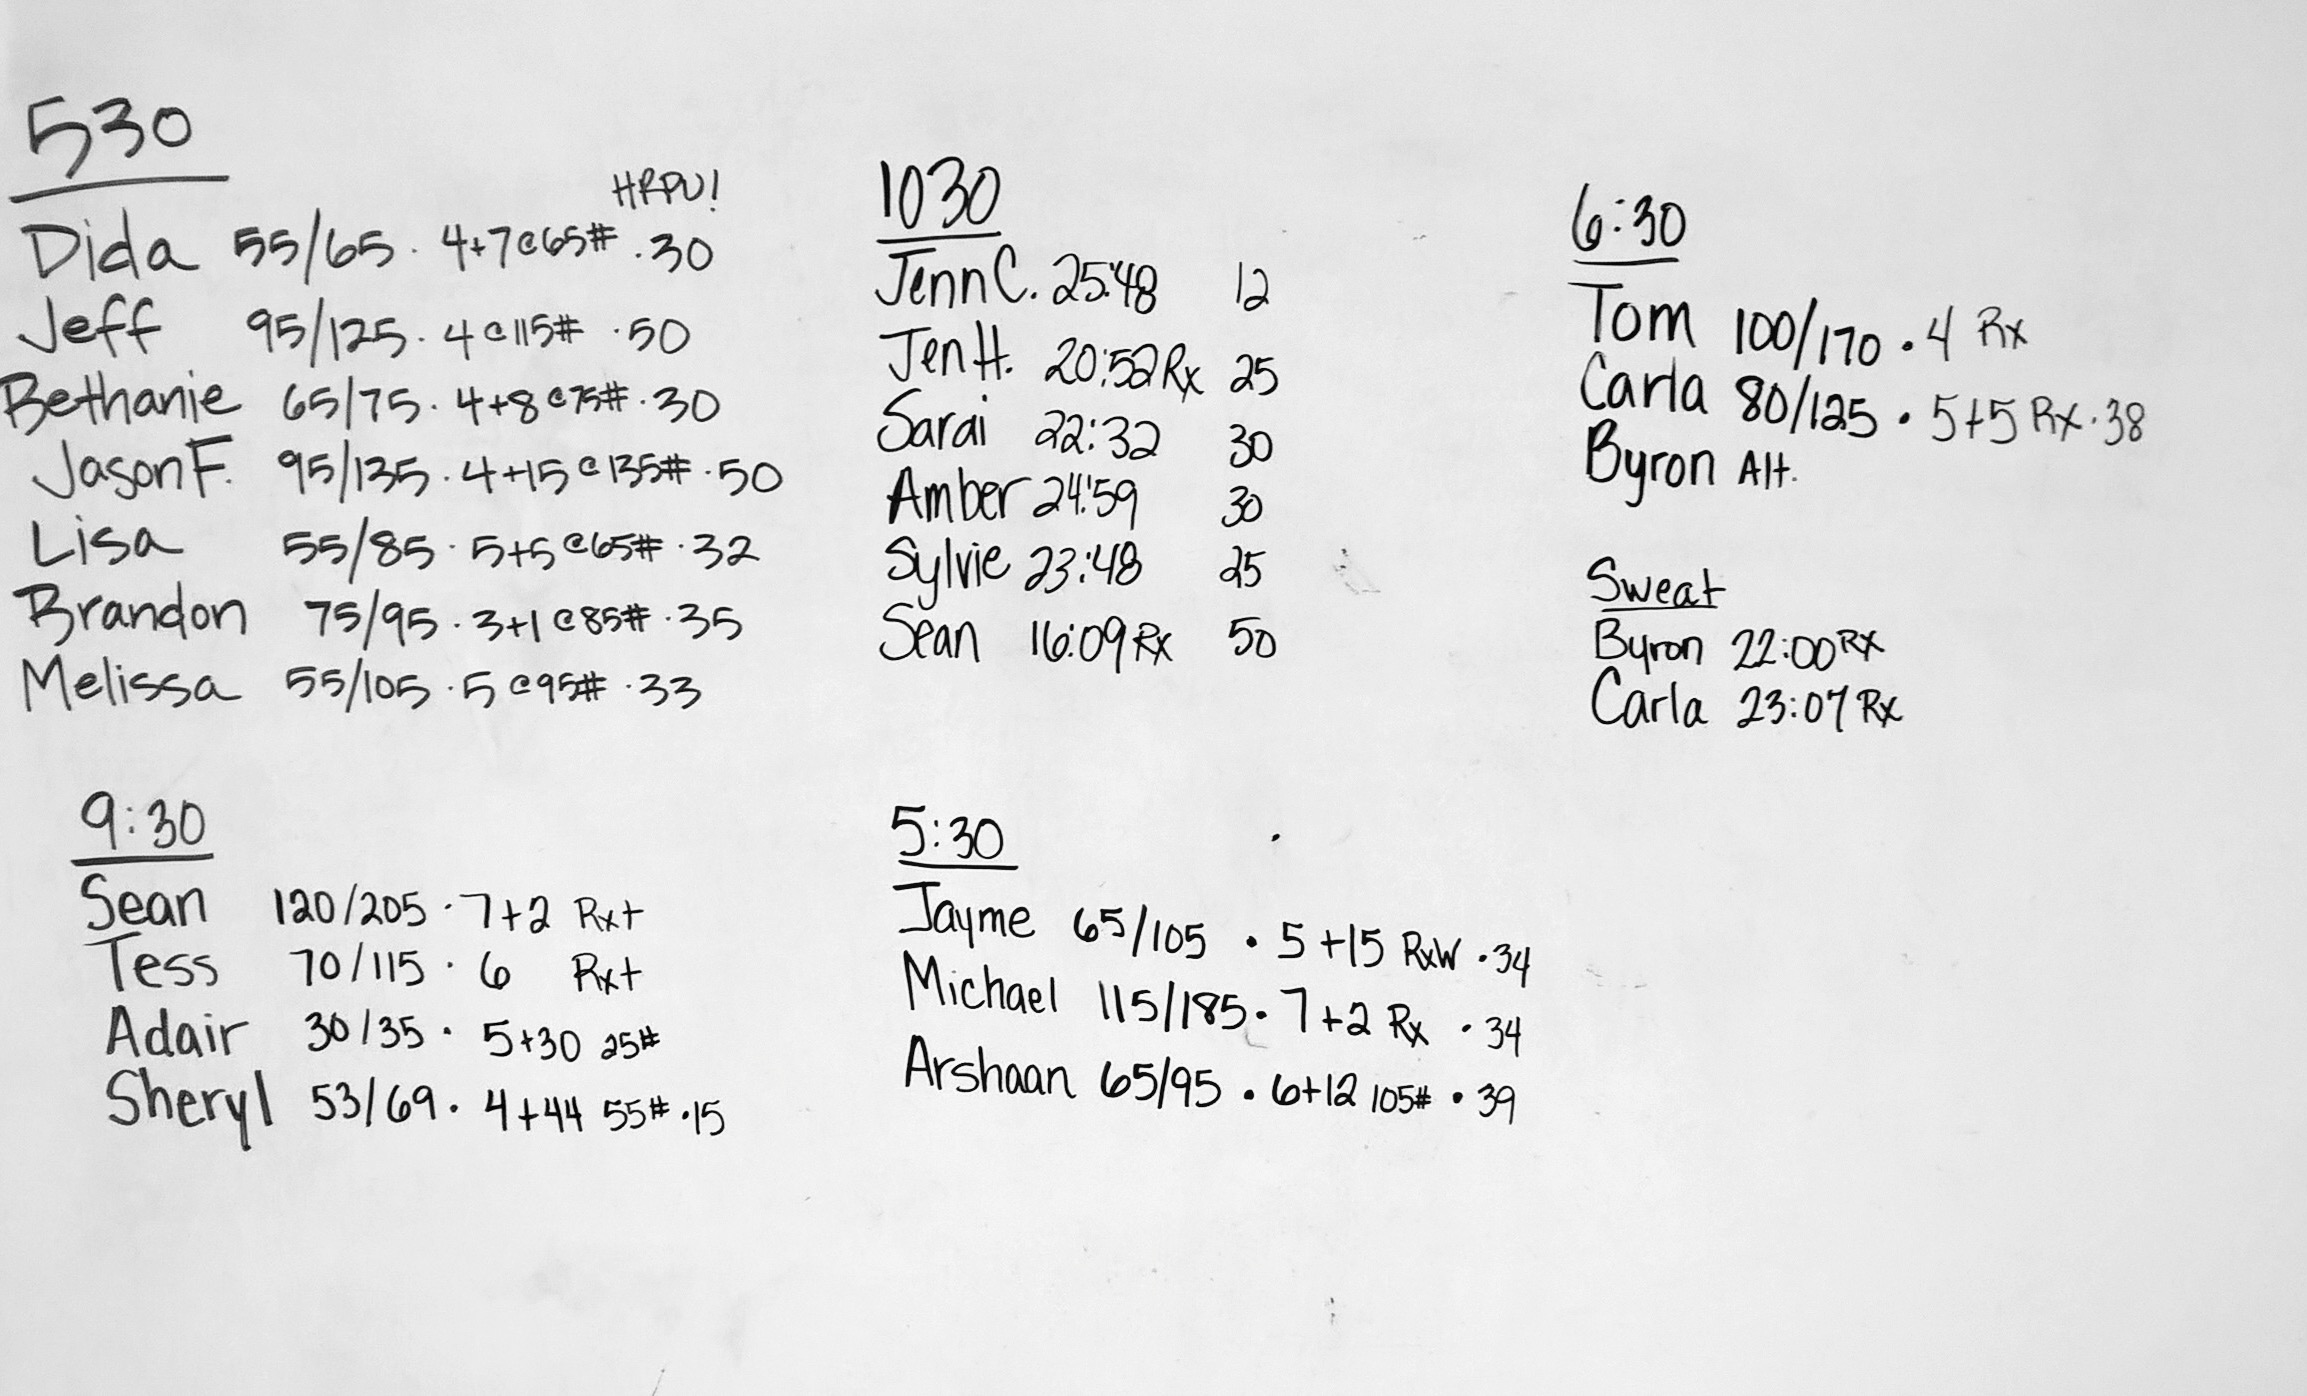 530
HRPU!
Dida 55/65 · 4+7@65# · 30
Jeff 95/125 · 4@115# · 50
Bethanie 65/75 · 4+8@75# · 30
Jason F. 95/135 · 4+15@135# · 50
Lisa 55/85 · 5+5@65# · 32
Brandon 75/95 · 3+1@85# · 35
Melissa 55/105 · 5@95# · 33
9:30
Sean 120/205 · 7+2 Rx+
Tess 70/115 · 6 Rx+
Adair 30/35 · 5+30 25#
Sheryl 53/69 · 4+44 55# · 15
1030
Jenn C. 25:48 12
Jen H. 20:52 Rx 25
Sarai 22:32 30
Amber 24:59 30
Sylvie 23:48 25
Sean 16:09 Rx 50
5:30
Jayme 65/105 · 5+15 RxW · 34
Michael 115/185 · 7+2 Rx · 34
Arshaan 65/95 · 6+12 105# · 39
6:30
Tom 100/170 · 4 Rx
Carla 80/125 · 5+5 Rx · 38
Byron Alt.
Sweat
Byron 22:00 Rx
Carla 23:07 Rx